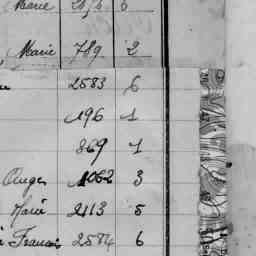 Marie 6
Marie 789 2
2583 6
196 1
869 1
Ange 1062 3
Marie 2113 5
Francois 2584 6